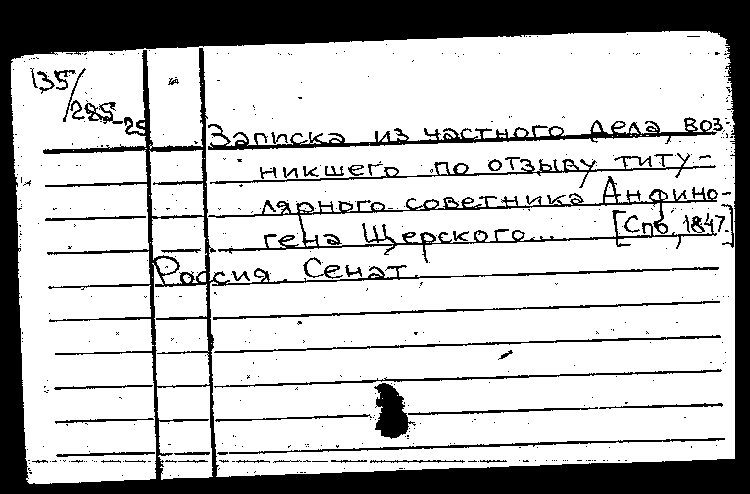 135/285-25
Записка из частного дела, воз-
никшего по отзыву титу-
лярного советника Анфино-
гена Щерского... [Спб, 1847.]
Россия. Сенат.